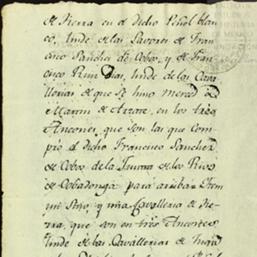 de tierra en el dicho Peñol blan
co, linde de las Lavores de Fran
cisco Sanches de Cobos, y de Fran
cisco Ruiz Dias, linde de las Cava
llerias de que se hizo merced
Martin de en los tres
Ancones, que son las que com
pró el dicho Francisco Sanches
de Cobos de la de los Rios
de Cobadonga para arriba
un Sitio, y una Cavalleria de tie
rra, que son en tres Ancones
linde de las Cavallerias de